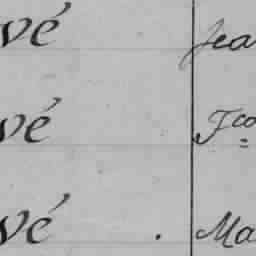 vé Jea
vé Fco
vé . Ma